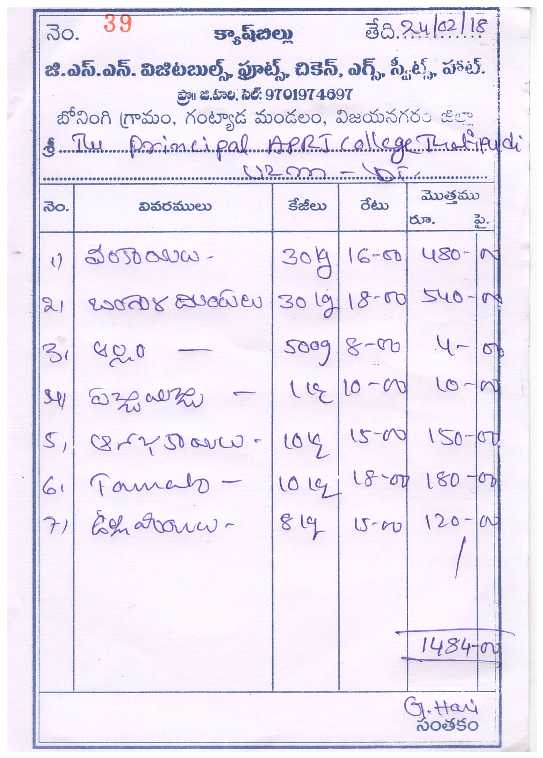 నెం. 39 క్యాష్‌బిల్లు తేది. 24/02/18
జి.ఎస్.ఎన్. విజిటబుల్స్, ఫ్రూట్స్, చికెన్, ఎగ్స్, స్వీట్స్, హాట్.
ప్రొ॥ జి.హరి, సెల్: 9701974697
బోనింగి గ్రామం, గంట్యాడ మండలం, విజయనగరం జిల్లా
శ్రీ The Principal APRJ College Thatipudi
VZM - Dt.
నెం. వివరములు కేజీలు రేటు మొత్తము
రూ. పై.
1) వంకాయలు - 30 kg 16-00 480-00
2) బంగాళ దుంపలు 30 kg 18-00 540-00
3) అల్లం — 500g 8-00 4-00
4) పచ్చి బఠాణి — 1 kg 10-00 10-00
5) ఆనపకాయలు - 10 kg 15-00 150-00
6) Tomato - 10 kg 18-00 180-00
7) ఉల్లిపాయలు - 8 kg 15-00 120-00
1484-00
G. Hari
సంతకం